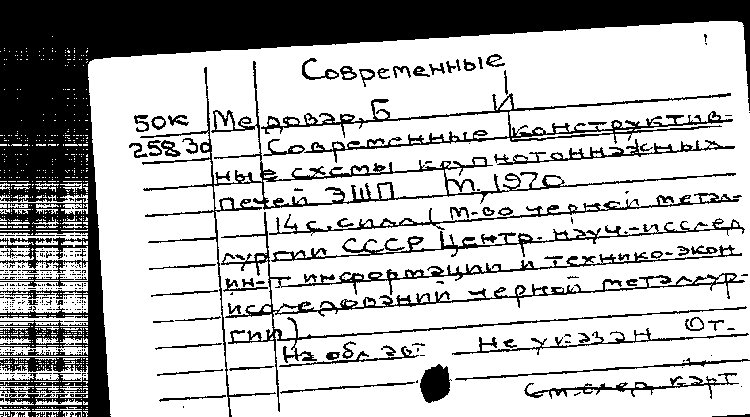 Современные
50к Медовар, Б И
25830 Современные конструктив-
ные схемы крупнотоннажных
печей ЭШП М, 1970
14 с. силл (М-во черной метал-
лургии СССР Центр. науч.-исслед
ин-т информации и технико-экон
исследований черной металлур-
гии).
На обл авт Не указан От-
См след карт